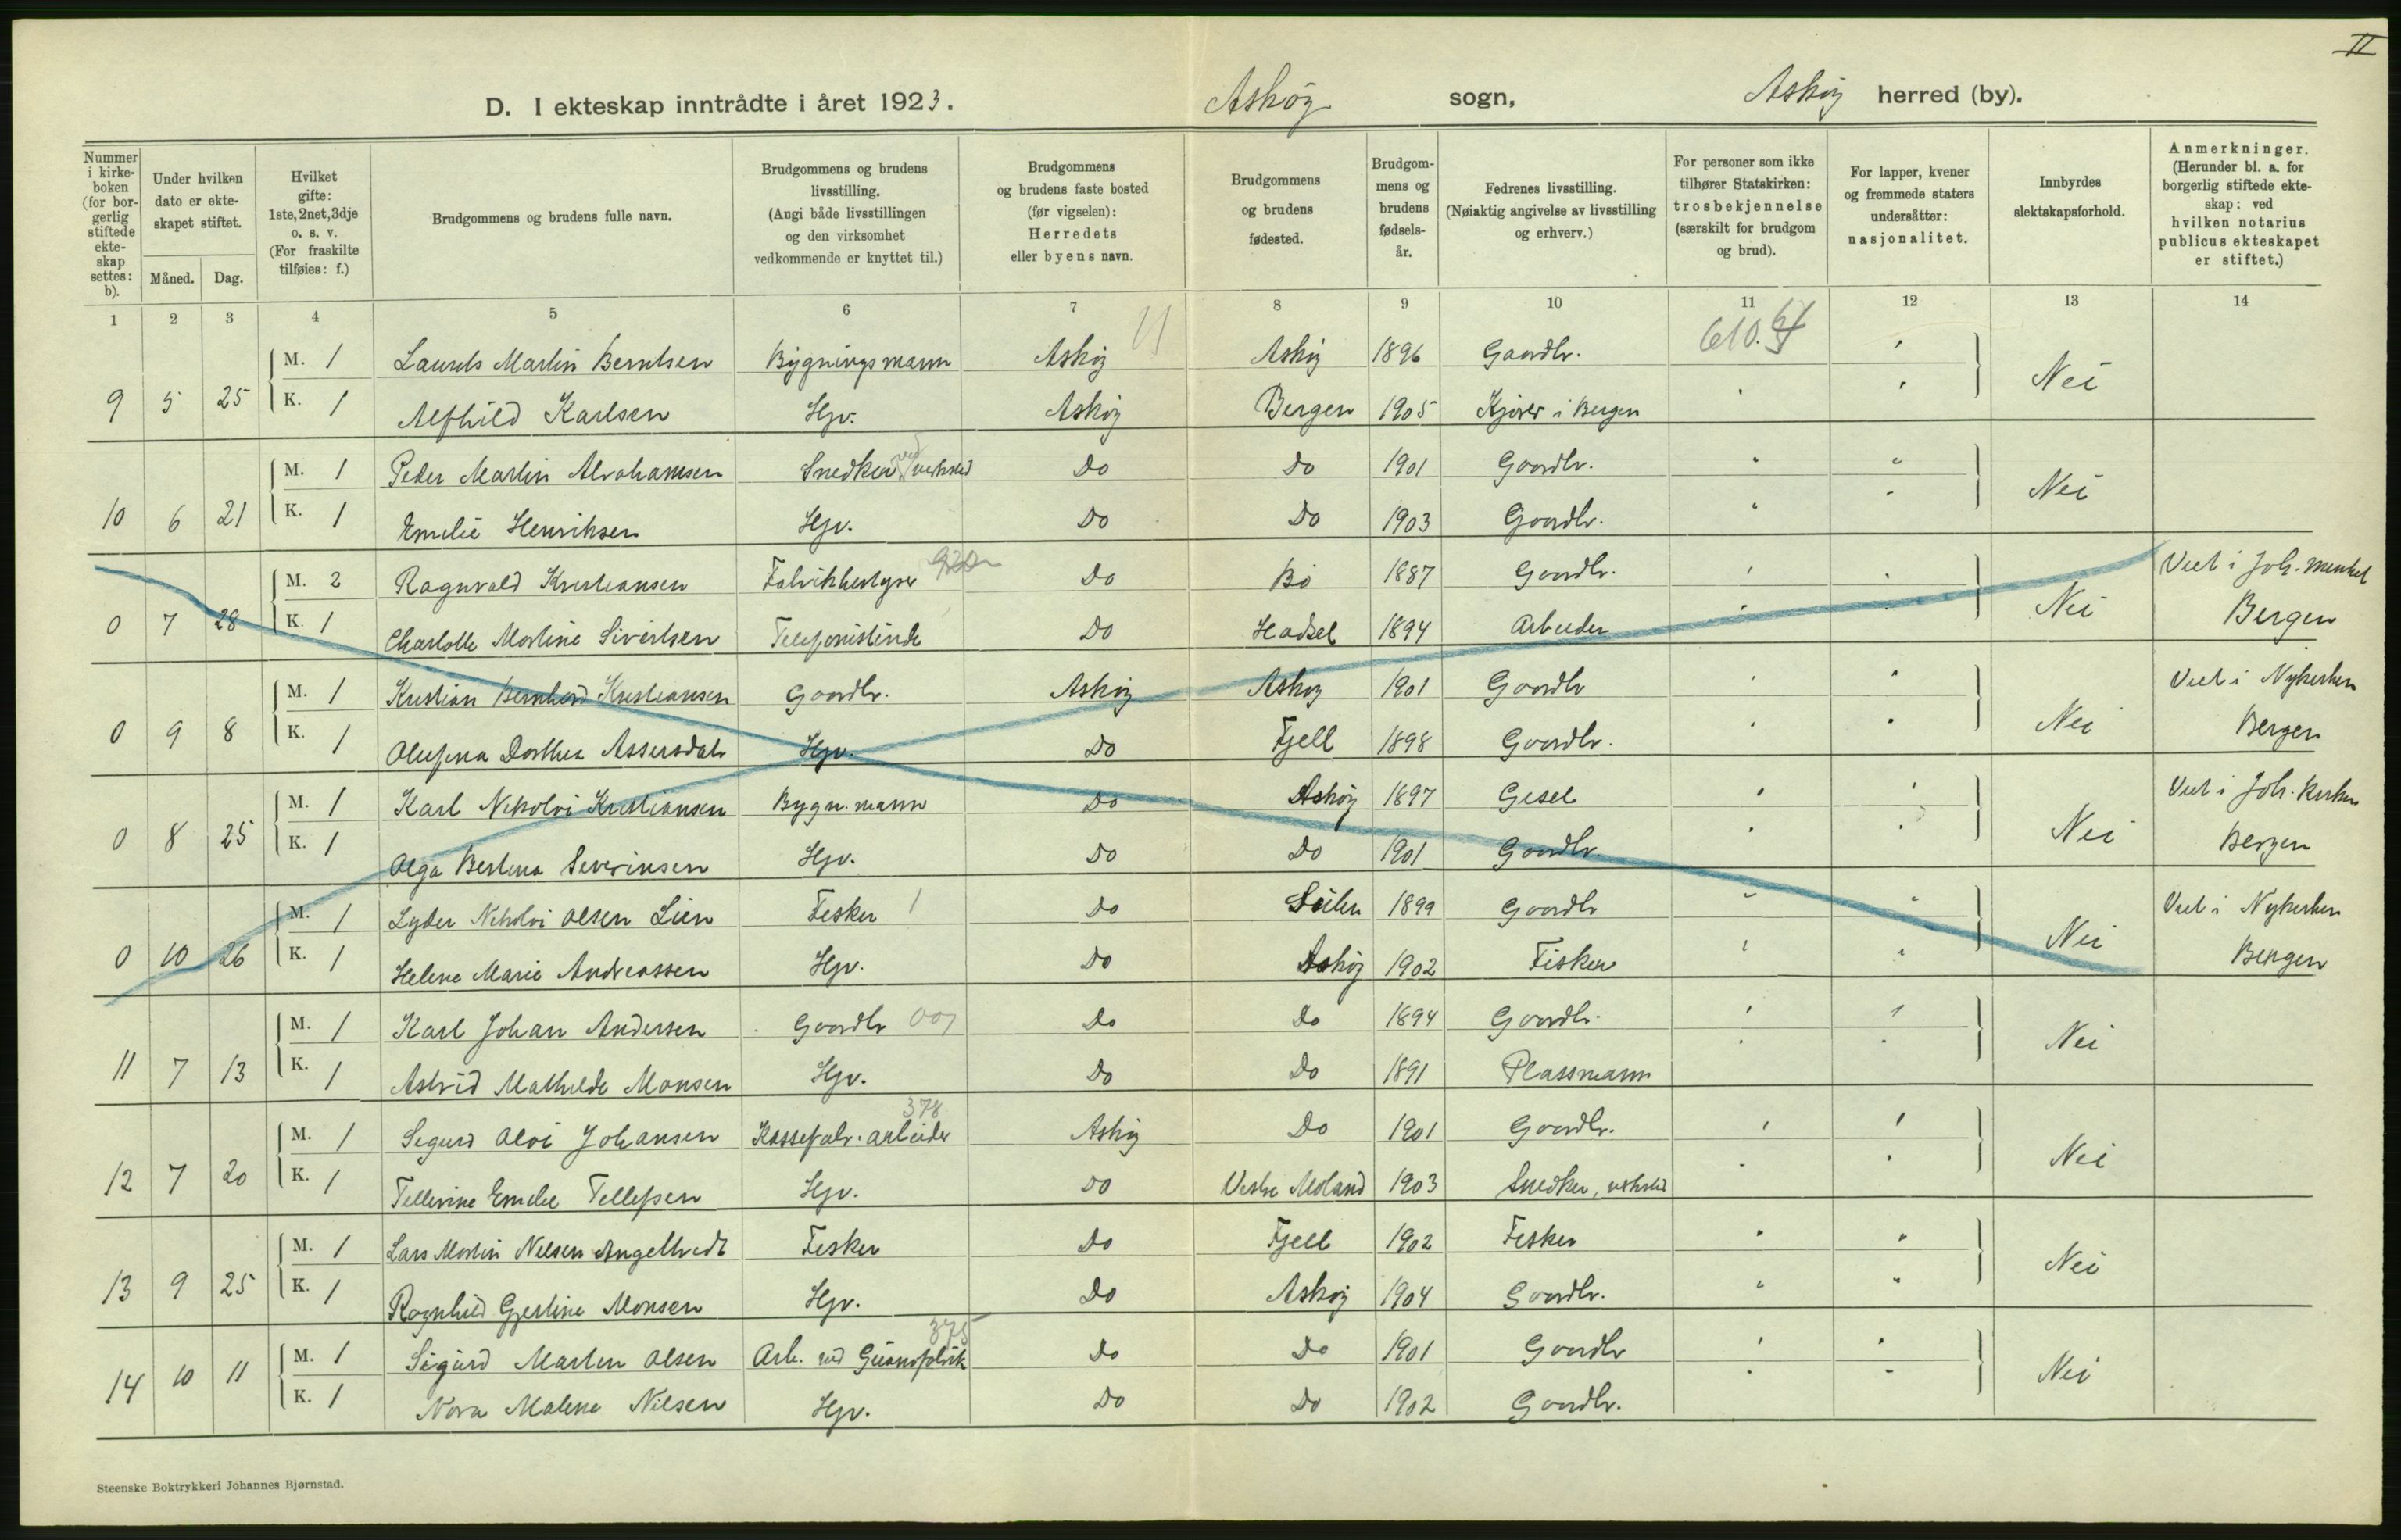 II
D. I ekteskap inntrådte i året 1923. Askøy sogn, Askøy herred (by).
Nummer i kirkeboken (for borgerlig stiftede ekteskap settes: b).
Under hvilken dato er ekteskapet stiftet.
Måned. Dag.
Hvilket gifte: 1ste, 2net, 3dje o. s. v. (For fraskilte tilføies: f.)
Brudgommens og brudens fulle navn.
Brudgommens og brudens livsstilling. (Angi både livsstillingen og den virksomhet vedkommende er knyttet til.)
Brudgommens og brudens faste bosted (før vigselen): Herredets eller byens navn.
Brudgommens og brudens fødested.
Brudgommens og brudens fødselsår.
Fedrenes livsstilling. (Nøiaktig angivelse av livsstilling og erhverv.)
For personer som ikke tilhører Statskirken: trosbekjennelse (særskilt for brudgom og brud).
For lapper, kvener og fremmede staters undersåtter: nasjonalitet.
Innbyrdes slektskapsforhold.
Anmerkninger. (Herunder bl. a. for borgerlig stiftede ekteskap: ved hvilken notarius publicus ekteskapet er stiftet.)
1 2 3 4 5 6 7 8 9 10 11 12 13 14
M. 1 Laurits Martin Berntsen Bygningsmann Askøy Askøy 1896 Gaardbr. 610.
9 5 25 K. 1 Alfhild Karlsen Hjv. Askøy Bergen 1905 Kjører i Bergen Nei
M. 1 Peder Martin Abrahamsen Snedker ved verksted Do Do 1901 Gaardbr. " "
10 6 21 K. 1 Emilie Henriksen Hjv. Do Do 1903 Gaardbr. " " Nei
M. 2 Ragnvald Kristiansen Fabrikkbestyrer Do Bø 1887 Gaardbr. Viet i Joh. menhet
0 7 28 K. 1 Charlotte Martine Sivertsen Telefonistinde Do Hadsel 1894 Arbeider Nei Bergen
M. 1 Kristian Bernhard Kristiansen Gaardbr. Askøy Askøy 1901 Gaardbr Viet i Nykirken
0 9 8 K. 1 Olufina Dorthea Assersdatr Hjv. Do Fjell 1898 Gaardbr. Nei Bergen
M. 1 Karl Nikolai Kristiansen Bygn. mann Do Askøy 1897 Gesel Viet i Joh. kirken
0 8 25 K. 1 Olga Bertina Severinsen Hjv. Do Do 1901 Gaardbr. Nei Bergen
M. 1 Lyder Nikolai Olsen Lien Fisker 1 Do 1899 Gaardbr " " Viet i Nykirken
0 10 26 K. 1 Helene Marie Andreassen Hjv. Do Askøy 1902 Fisker Nei Bergen
M. 1 Karl Johan Andersen Gaardbr 001 Do Do 1894 Gaardbr.
11 7 13 K. 1 Astrid Mathilde Monsen Hjv. Do Do 1891 Plassmann Nei
378
M. 1 Sigurd Olai Johansen Kassefabr. arbeider Askøy Do 1901 Gaardbr.
12 7 20 K. 1 Tellevine Emilie Tellefsen Hjv. Do Vestre Moland 1903 Snedker, verksted Nei
M. 1 Lars Martin Nilsen Angeltvedt Fisker Do Fjell 1902 Fisker " "
13 9 25 K. 1 Ragnhild Gjertine Monsen Hjv. Do Askøy 1904 Gaardbr. " " Nei
375
M. 1 Sigurd Martin Olsen Arb. ved Guanofabrik Do Do 1901 Gaardbr
14 10 11 K. 1 Nora Malene Nilsen Hjv. Do Do 1902 Gaardbr. Nei
Steenske Boktrykkeri Johannes Bjørnstad.